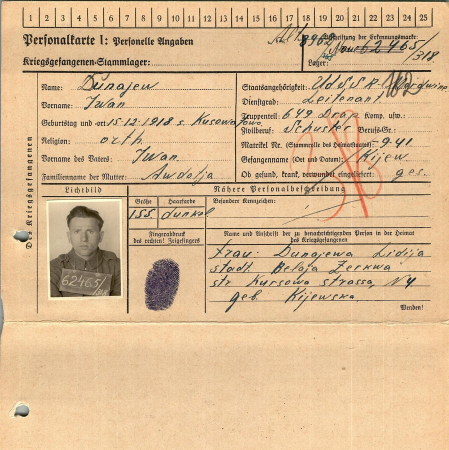 1 2 3 4 5 6 7 8 9 10 11 12 13 14 15 16 17 18 19 20 21 22 23 24 25
Personalkarte I: Personelle Angaben
Kriegsgefangenen-Stammlager:
Beschriftung der Erkennungsmarke:
Nr. 62465/
318
Lager:
Des Kriegsgefangenen
Name: Dunajew
Vorname: Iwan
Geburtstag und -ort: 15.12.1918 s. Kusowa
Religion: orth
Vorname des Vaters: Iwan
Familienname der Mutter: Awdotja
Staatsangehörigkeit: UdSSR
Dienstgrad: Leitenant
Truppenteil: 649 Komp. usw.:
Zivilberuf: Schuster Berufs-Gr.:
Matrikel Nr. (Stammrolle des Heimatstaates): -9.41
Gefangennahme (Ort und Datum): Kijew
Ob gesund, krank, verwundet eingeliefert: ges.
Lichtbild
Nähere Personalbeschreibung
Größe
Haarfarbe
Besondere Kennzeichen:
155 dunkel
Fingerabdruck
des rechten! Zeigefingers
62465
Name und Anschrift der zu benachrichtigenden Person in der Heimat
des Kriegsgefangenen
frau: Dunajewa Lidija
stadt Belaja Zerkwa
str Kursowa strassa, N4
geb. Kijewska
Wenden!